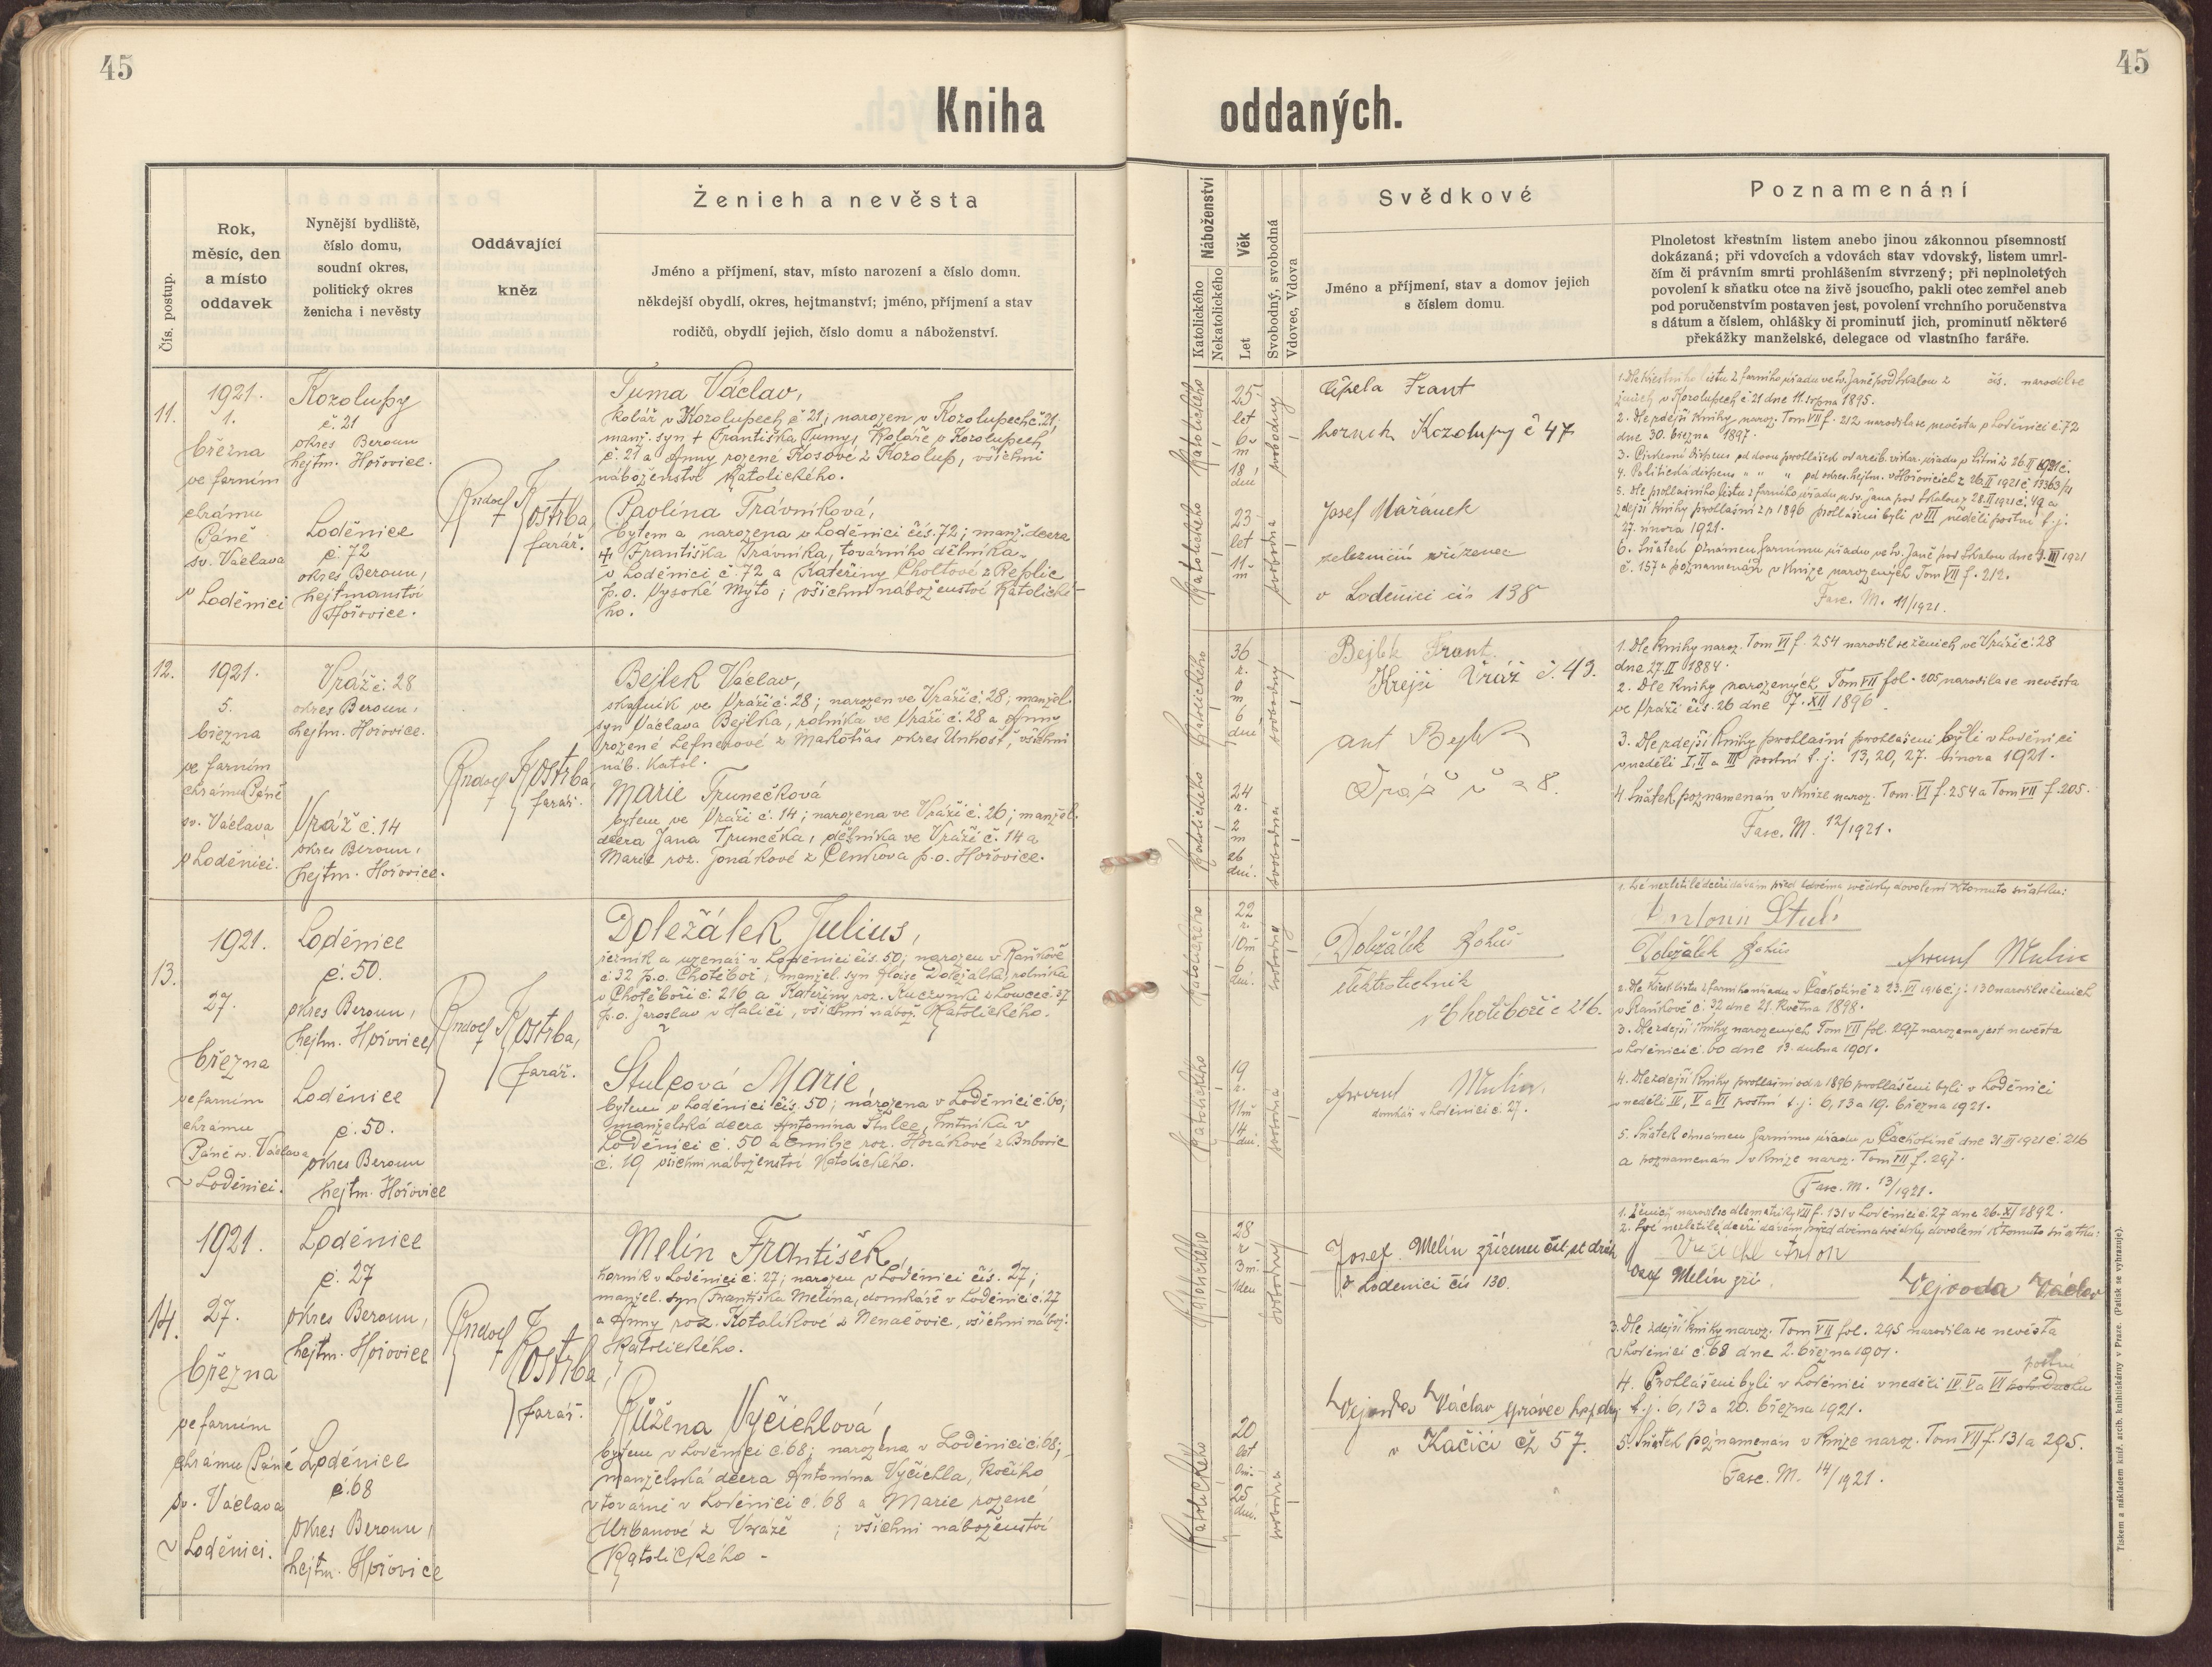 45
45
Kniha
oddaných.
Čís. postup.
Rok,
měsíc, den
a místo
oddavek
Nynější bydliště,
číslo domu,
soudní okres,
politický okres
ženicha i nevěsty
Oddávající
kněz
Ženich a nevěsta
Jméno a příjmení, stav, místo narození a číslo domu.
někdejší obydlí, okres, hejtmanství; jméno, příjmení a stav
rodičů, obydlí jejich, číslo domu a náboženství.
Náboženství
Katolického
Nekatolického
Věk
Let
Svobodný, svobodná
Vdovec, Vdova
Svědkové
Jméno a příjmení, stav a domov jejich
s číslem domu.
Poznamenání
Plnoletost křestním listem anebo jinou zákonnou písemností
dokázaná; při vdovcích a vdovách stav vdovský, listem umrl-
čím či právním smrti prohlášením stvrzený; při neplnoletých
povolení k sňatku otce na živě jsoucího, pakli otec zemřel aneb
pod poručenstvím postaven jest, povolení vrchního poručenstva
s dátum a číslem, ohlášky či prominutí jich, prominutí některé
překážky manželské, delegace od vlastního faráře.
11.
1921.
1.
března
ve farním
chrámu
Páně
sv. Václava
v Loděnici
Kozolupy
č. 21
okres Beroun
hejtm. Hořovice.
Loděnice
č. 72
okres Beroun,
hejtmanství
Hořovice.
Rudolf Kostrba,
farář.
Tuma Václav,
kolář v Kozolupech č 21; narozen v Kozolupech č. 21,
manž. syn † Františka Tumy, koláře v Kozolupech
č. 21 a Anny rozené Kosové z Kozolup, všichni
náboženství katolického.
Paolína Trávníková,
bytem a narozena v Loděnici čís. 72; manž. dcera
† Františka Trávníka, továrního dělníka
v Loděnici č. 72 a Kateřiny Choltové z Replic
p. o. Vysoké Mýto; všichni náboženství katolické-
ho.
Katolického
25
let
6
m
18
dní
svobodný
Katolického
23
let
11
m
svobodna
Frant
horník Kozolupy č 47
Josef Mařánek
železniční zřízenec
v Loděnici čis 138
1. Dle křestního listu z farního úřadu ve sv. Janě pod Skalou z čís. narodil se
ženich v Kozolupech č 21 dne 11. srpna 1895.
2. Dle zdejší knihy naroz. Tom VII f. 212 narodila se nevěsta v Loděnici č. 72
dne 30. března 1897.
27. února 1921.
6. Sňatek oznámen farnímu úřadu ve sv. Janě pod Skalou dne 3. III 1921
č. 157 a poznamenán v knize narozených Tom VII f. 212.
Fasc. M. 11/1921.
12.
1921.
5.
března
ve farním
chrámu Páně
sv. Václava
v Loděnici.
Vráž č. 28
okres Beroun,
hejtm. Hořovice.
Vráž č. 14
okres Beroun,
hejtm. Hořovice.
Rudolf Kostrba,
farář.
Bejlek Václav,
skalník ve Vráži č. 28; narozen ve Vráži č. 28; manžel.
syn Václava Bejlka, rolníka ve Vráži č. 28 a Anny
rozené Lefnerové z Makotřas okres Unhošť, všichni
náb. katol.
Marie Trunečková
bytem ve Vráži č. 14; narozena ve Vráži č. 26; manžel.
dcera Jana Trunečka, dělníka ve Vráži č. 14 a
Marie roz. Jonákové z Čenkova p. o. Hořovice.
Katolického
36
r.
0
m
6
dní
svobodný
Katolického
24
r.
2
m
26
dní.
svobodná
Bejlek Frant.
Krejčí Vráž č. 49.
Ant Bejlek
1. Dle knihy naroz. Tom VI f. 254 narodil se ženich ve Vráži č. 28
dne 27. II 1884.
2. Dle knihy narozených Tom VII fol. 205 narodila se nevěsta
ve Vráži čís. 26 dne 7. XII 1896.
3. Dle zdejší knihy prohlášní prohlášeni byli v Loděnici
v neděli I, II a III postní t. j. 13, 20, 27. února 1921.
4. Sňatek poznamenán v knize naroz. Tom. VI f. 254 a Tom VII f. 205.
Fasc. M. 12/1921.
13.
1921.
27.
března
ve farním
chrámu
Páně sv. Václava
v Loděnici.
Loděnice
č. 50.
okres Beroun,
hejtm. Hořovice
Loděnice
č. 50.
okres Beroun
hejtm. Hořovice
Rudolf Kostrba,
farář.
Doležálek Julius,
řezník a uzenář v Loděnici čís. 50; narozen v Raňkově
č 32 p. o. Chotěboř; manžel. syn Aloise Doležálka, rolníka
v Chotěboři č. 216 a Kateřiny roz. Kuczynki z Lowce č. 37
p. o. Jaroslav v Haliči, všichni nábož. katolického.
Štulcová Marie,
bytem v Loděnici čís. 50; narozena v Loděnici č. 60;
manželská dcera Antonína Štulce, hutníka v
Loděnici č. 50 a Emilie roz. Horákové z Bubovic
č. 19 všichni náboženství katolického.
Katolického
22
r.
10 m
6
dní.
svobodný
Katolického
19
r.
11 m
14
dní.
svobodna
Doležálek
elektrotechnik
v Chotěboři č 216.
Melin.
domkář v Loděnici č. 27.
1. Své nezletilé dceři dávám před dvěma svědky dovolení k tomuto sňatku:
Antonín Štulc
Doležálek
Melin
v Raňkově č. 32 dne 21. května 1898.
3. Dle zdejší knihy narozených Tom VII fol. 297 narozena jest nevěsta
v Loděnici č. 60 dne 13. dubna 1901.
4. Dle zdejší knihy prohlášní od r. 1896 prohlášeni byli v Loděnici
v neděli IV, V a VI postní t. j. 6, 13 a 19. března 1921.
5. Sňatek oznámen farnímu úřadu v Čachotíně dne 31. III 1921 č. 216
a poznamenán v knize naroz. Tom VII f. 297.
Fasc. M. 13/1921.
14.
1921.
27.
března
ve farním
chrámu Páně
sv. Václava
v Loděnici.
Loděnice
č. 27
okres Beroun,
hejtm. Hořovice
Loděnice
č. 68
okres Beroun,
hejtm. Hořovice
Rudolf Kostrba,
farář.
Melín František,
horník v Loděnici č. 27; narozen v Loděnici čís. 27;
manžel. syn Františka Melína, domkáře v Loděnici č. 27
a Anny roz. Kotalíkové z Nenačovic, všichni nábož.
katolického.
Růžena Vyčichlová,
bytem v Loděnici č. 68; narozena v Loděnici č. 68;
manželská dcera Antonína Vyčichla, kočího
v továrně v Loděnici č. 68 a Marie rozené
Urbanové z Vráže ; všichni náboženství
katolického.
Katolického
28
r.
3 m
1 den
svobodný
Katolického
20
let
0 m.
25
dní.
svobodna
Josef Melín zřízenec
v Lodenici čís 130.
Vejvoda Václav správce
v Kačici čp 57.
1. Ženich narodil se dle matriky VII f. 131 v Loděnici č. 27 dne 26. XI 1892.
2. Své nezletilé dceři dávám před dvěma svědky dovolení k tomuto sňatku:
Vyčichl Anton
Josef Melín zří.
Vejvoda Václav
3. Dle zdejší knihy naroz. Tom VII fol. 295 narodila se nevěsta
v Loděnici č. 68 dne 2. března 1901.
postní
4. Prohlášeni byli v Loděnici v neděli IV. V a VI
t. j. 6, 13 a 20. března 1921.
5. Sňatek poznamenán v knize naroz. Tom VII f. 131 a 295.
Fasc. M. 14/1921.
Tiskem a nákladem kníž. arcib. knihtiskárny v Praze. (Patisk se vyhrazuje).